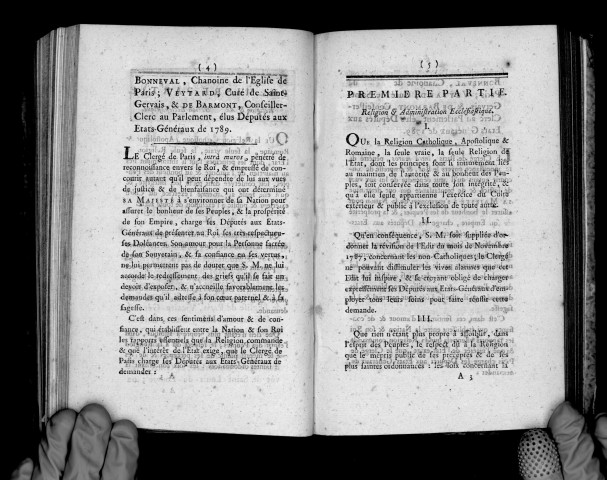 ( 4 )
BONNEVAL, Chanoine de l'Eglise de
Paris; VEYTARD, Curé de Saint-
Gervais, & DE BARMONT, Conseiller-
Clerc au Parlement, élus Députés aux
Etats-Généraux de 1789.
LE Clergé de Paris, intrà muros, pénétré de
reconnoissance envers le Roi, & empressé de con-
courir autant qu'il peut dépendre de lui aux vues
de justice & de bienfaisance qui ont déterminé
SA MAJESTÉ à s'environner de sa Nation pour
assurer le bonheur de ses Peuples, & la prospérité
de son Empire, charge ses Députés aux Etats-
Généraux de présenter au Roi ses très-respectueu-
ses Doléances. Son amour pour la Personne sacrée
de son Souverain, & sa confiance en ses vertus,
ne lui permettent pas de douter que S. M. ne lui
accorde le redressement des griefs qu'il se fait un
devoir d'exposer, & n'accueille favorablement les
demandes qu'il adresse à son cœur paternel & à sa
sagesse.
C'est dans ces sentimens d'amour & de con-
fiance, qui établissent entre la Nation & son Roi
les rapports essentiels que la Religion commande
& que l'intérêt de l'Etat exige, que le Clergé de
Paris charge ses Députés aux Etats-Généraux de
demander :
( 5 )
PREMIERE PARTIE.
Religion & Administration Ecclésiastique.
I.
QUE la Religion Catholique, Apostolique &
Romaine, la seule vraie, la seule Religion de
l'Etat, dont les principes sont si intimement liés
au maintien de l'autorité & au bonheur des Peu-
ples, soit conservée dans toute son intégrité, &
qu'à elle seule appartienne l'exercice du Culte
extérieur & public à l'exclusion de toute autre.
II.
Qu'en conséquence, S. M. soit suppliée d'or-
donner la révision de l'Edit du mois de Novembre
1787, concernant les non-Catholiques; le Clergé
ne pouvant dissimuler les vives alarmes que cet
Edit lui inspire, & se croyant obligé de charger
expressément ses Députés aux Etats-Généraux d'em-
ployer tous leurs soins pour faire réussir cette
demande.
III.
Que rien n'étant plus propre à affoiblir, dans
l'esprit des Peuples, le respect dû à la Religion
que le mépris public de ses préceptes & de ses
plus saintes ordonnances : les loix concernant la
A 3